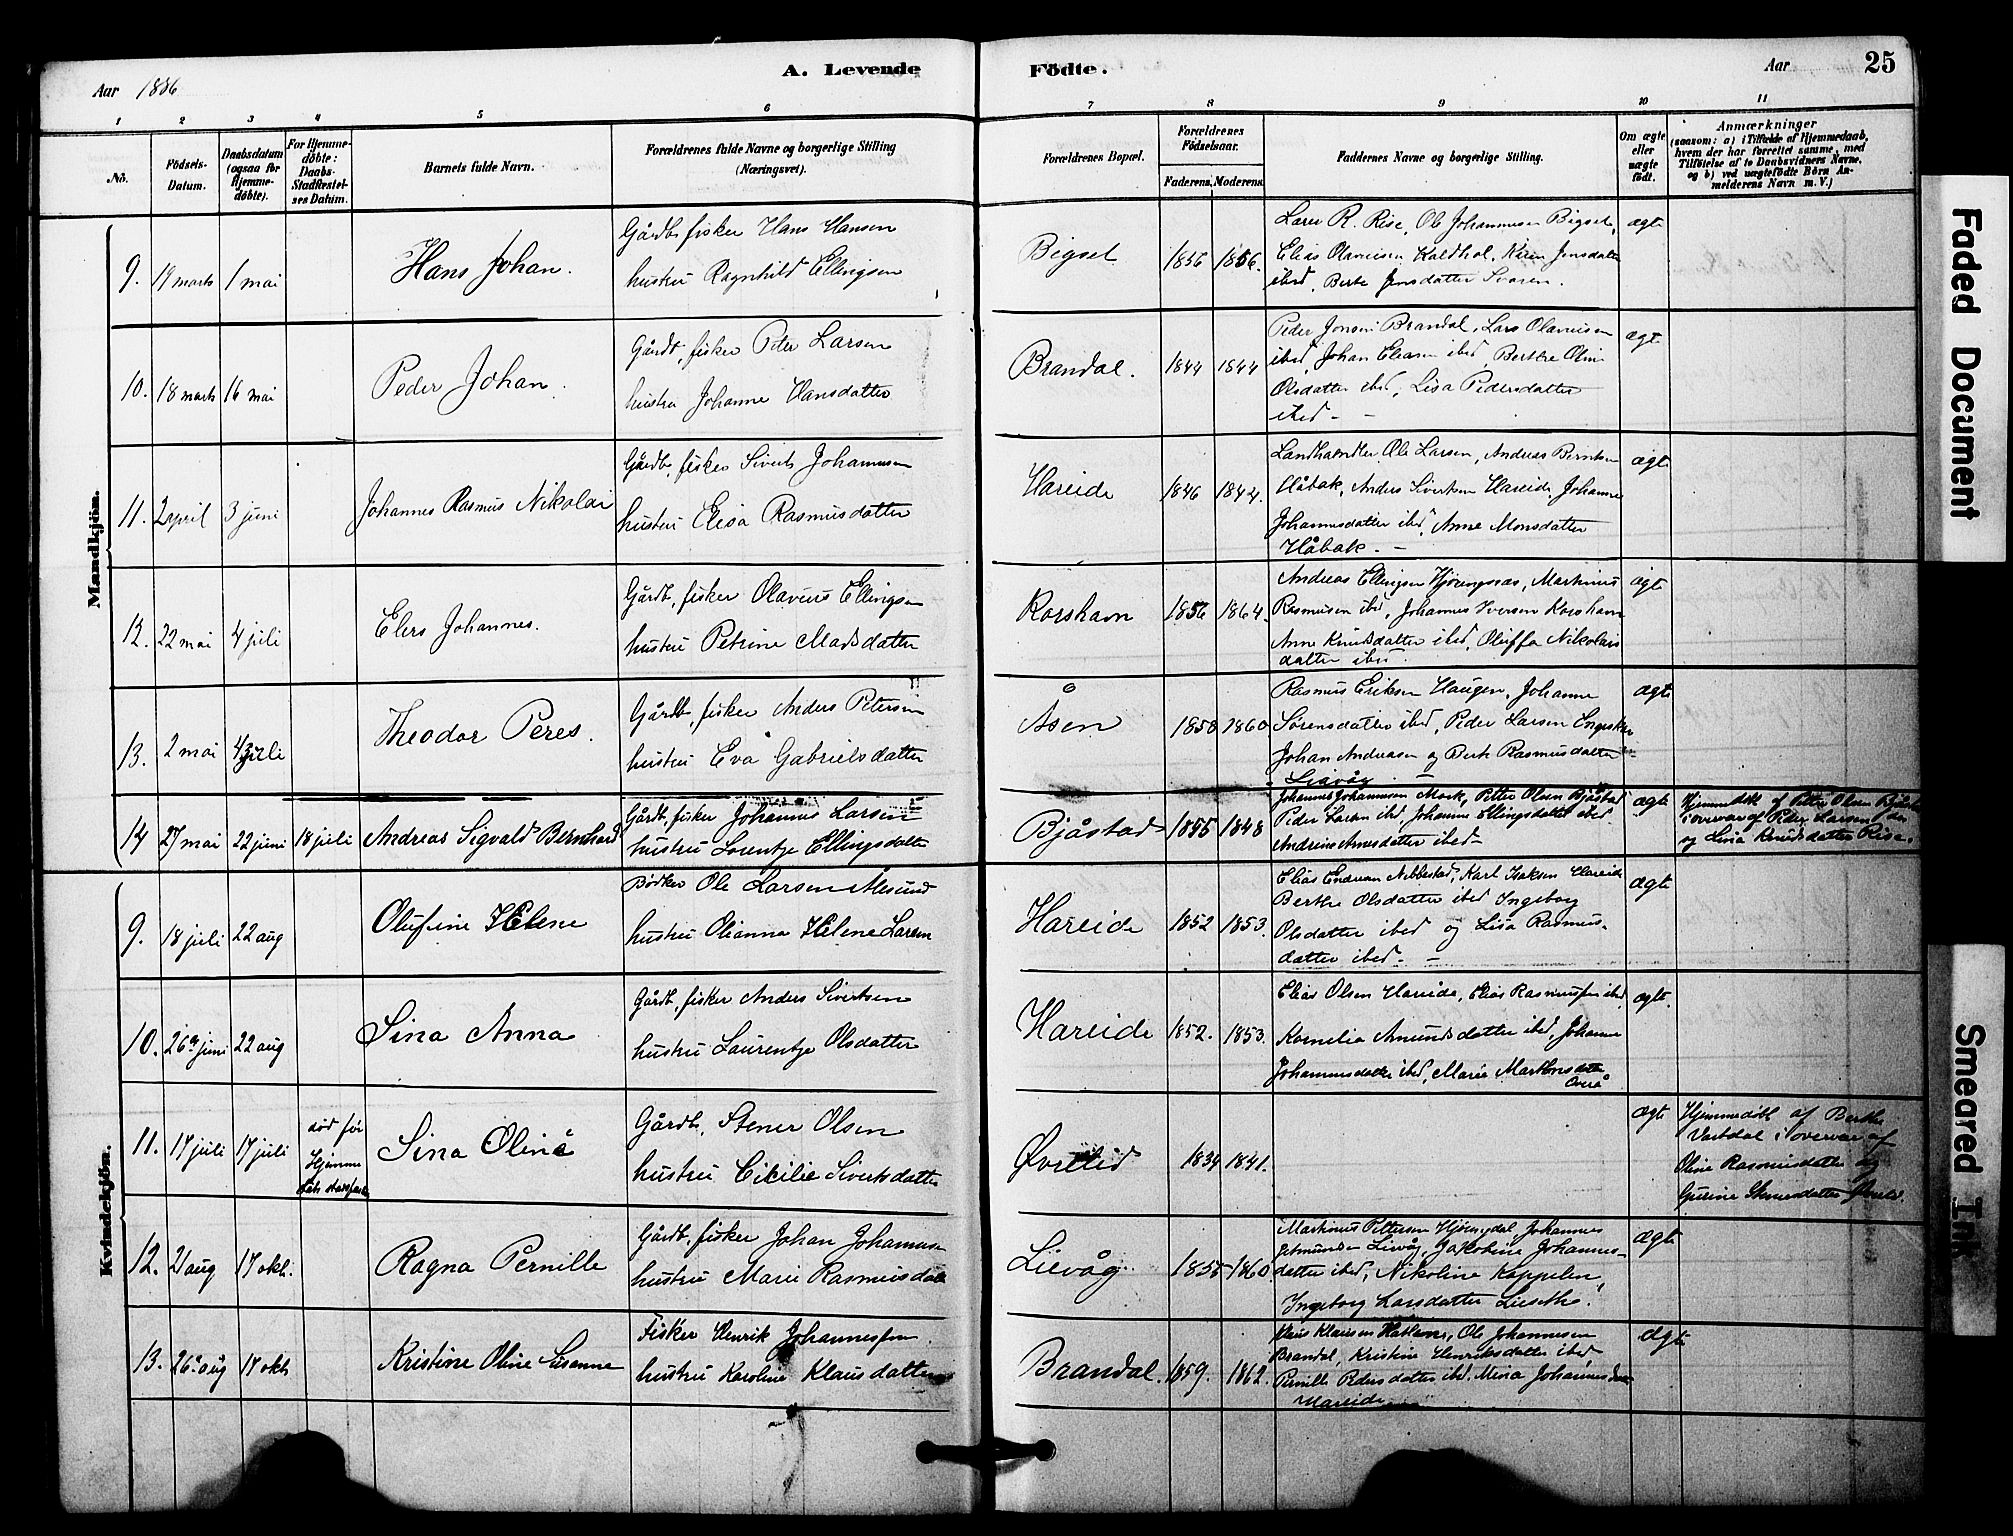 Aar 1886
A. Levende Födte.
Aar 25
1 2 3 4 5 6 7 8 9 10 11
No.
Födsels-Datum.
Daabsdatum (ogsaa for Hjemmedöbte).
For Hjemmedöbte: Daabs-Stadfæstelses Datum.
Barnets fulde Navn.
Forældrenes fulde Navne og borgerlige Stilling (Næringsvei).
Forældrenes Bopæl.
Forældrenes Födselsaar.
Faderens. Moderens.
Faddernes Navne og borgerlige Stilling.
Om ægte eller uægte födt.
Anmærkninger
(saasom: a) i Tilfælde af Hjemmedaab, hvem der har forrettet samme, med Tilföielse af to Daabsvidners Navne, og b) ved uægtefödte Börn Anmelderens Navn m. V.)
Mandkjön.
9. 19 marts 1 mai Hans Johan.
Gårdb, fisker Hans Hansen
hustru Ragnhild Ellingsen
Bigset 1856 1856.
Lars R. Rise, Ole Johannesen Bigset,
Elias Olavusen Kaldhol, Karen Jensdatter
ibid, Berte Jensdatter
ægte
10. 18 marts 16 mai Peder Johan.
Gårdb, fisker Peter Larsen
hustru Johanne Hansdatter
Brandal. 1844 1844
Peder Jonsen Brandal, Lars Olavusen
ibid, Johan Eliasen ibid, Berthe Oline
Olsdatter ibid, Lisa Pedersdatter
ibid - -
ægte
11. 2 april 3 juni Johannes Rasmus Nikolai
Gårdb, fisker Sivert Johannesen
hustru Elisa Rasmusdatter
Hareide 1846 1844.
Landhandler Ole Larsen, Andreas Berntsen
Håbak, Anders Sivertsen Hareide, Johanne
Johannesdatter ibid, Anne Monsdatter
Håbak. -
ægte
12. 22 mai 4 juli Elers Johannes.
Gårdb, fisker Olavus Ellingsen
hustru Petrine Madsdatter
Korshavn 1856 1864.
Andreas Ellingsen Hjørungnæs, Martinus
Rasmusen ibid, Johannes Iversen Korshavn
Anne Knudsdatter ibid, Oluffa Nikolais
datter ibid.
ægte
13. 2 mai 4 juli Theodor Peres.
Gårdb, fisker Anders Petersen
hustru Eva Gabrielsdatter
Åsen 1858 1860
Rasmus Eriksen Haugen, Johanne
Sørensdatter ibid, Peder Larsen
Johan Andreasen og Berte Rasmusdatter
Liavåg -
ægte
14 27 mai 22 juni 18 juli Andreas Sigvald Bernhard
Gårdb, fisker Johannes Larsen
hustru Lorentze Ellingsdatter
Bjåstad 1855 1848
Johannes Johannesen Mork, Petter Olsen Bjåstad
Peder Larsen ibid, Johanne Ellingsdatter ibid
Andrine Arnesdatter ibid -
ægte
Hjemmedøbt af Petter Olsen Bjåstad
i overvær af Peder Larsen
og Lina Knudsdatter Rise.
Kvindekjön.
9. 18 juli 22 aug Olufine Helene
Bødker Ole Larsen Ålesund
hustru Olianna Helene Larsen
Hareide 1852 1853.
Elias Endresen Nibbestad, Karl Isaksen Hareide
Berthe Olsdatter ibid Ingeborg
Olsdatter ibid og Lisa Rasmus-
datter ibid - -
ægte
10. 26de juni 22 aug Sina Anna
Gårdb, fisker Anders Sivertsen
hustru Laurentze Olsdatter
Hareide 1852. 1853.
Elias Olsen Hareide, Elias Rasmussen ibid
Kornelia Amundsdatter ibid, Johanne
Johannesdatter ibid, Marie Martinusdatter
Overå
ægte.
11. 17 juli 17 juli død før Hjemmedåbs stadfæst Sina Olina
Gårdb, Stener Olsen
hustru Cicilie Sivertsdatter
Øvrelid 1834 1841.
ægte
Hjemmedøbt af Berthe
Vartdal i overvær af
Oline Rasmusdatter og
Gurine Stenersdatter Øvrelid
12. 21 aug 17 okt. Ragna Pernille
Gårdb, fisker Johan Johannesen
hustru Marie Rasmusdatter
Lievåg 1858 1860.
Martinus Pettersen Hjørungdal Johannes
Lievåg, Jakobine Johannes-
datter ibid, Nikoline Koppelen,
Ingeborg Larsdatter Lieseth.
ægte
13. 26de aug 17 okt Kristine Oline Susanne
Fisker Henrik Johannessen
hustru Karoline Klausdatter
Brandal. 1859. 1862.
Klaus Klausen Hatløens, Ole Johannesen
Brandal, Kristine Henriksdatter ibid
Pernille Pedersdatter ibid, Mina Johannesdatter
Hareide
ægte
Faded Document
Smeared Ink